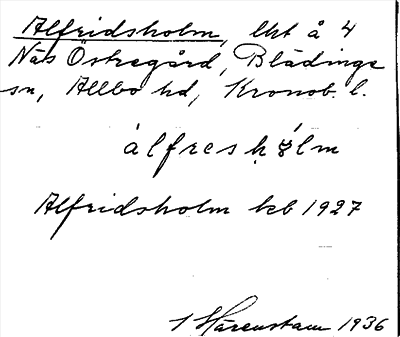 Alfridsholm, lht å 4
Näs Östregård, Blädinge
sn, Allbo hd, Kronob. l.
álfresḥólm
Alfridsholm kb 1927
Hårenstam 1936